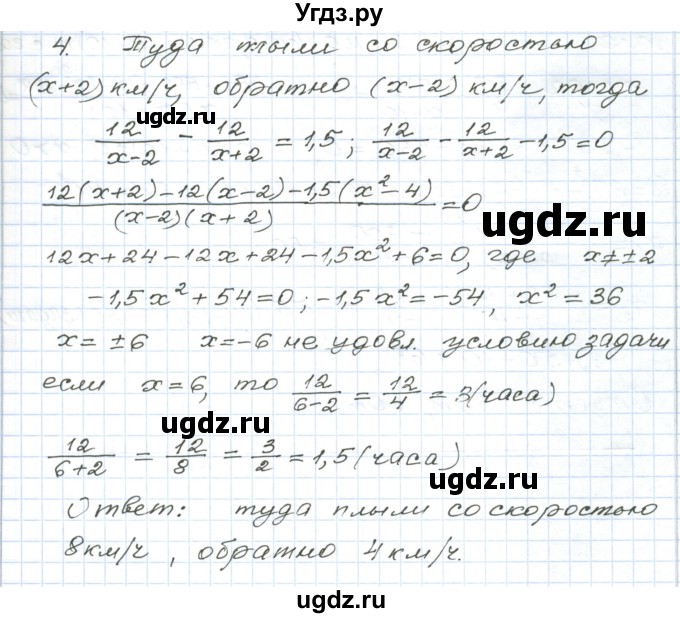 Угдз.ру
4. Туда плыли со скоростью
(x+2) км/ч, обратно (x-2) км/ч, тогда
12/(x-2) - 12/(x+2) = 1,5; 12/(x-2) - 12/(x+2) - 1,5 = 0
(12(x+2) - 12(x-2) - 1,5(x² - 4))/((x-2)(x+2)) = 0
ugdz.ru
12x + 24 - 12x + 24 - 1,5x² + 6 = 0, где x ≠ ±2
-1,5x² + 54 = 0; -1,5x² = -54, x² = 36
x = ±6 x = -6 не удовл. условию задачи
ugdz.ru
если x = 6, то 12/(6-2) = 12/4 = 3 (часа)
12/(6+2) = 12/8 = 3/2 = 1,5 (часа)
ugdz.ru
Ответ: туда плыли со скоростью
ugdz.ru
8 км/ч, обратно 4 км/ч.
ugdz.ru